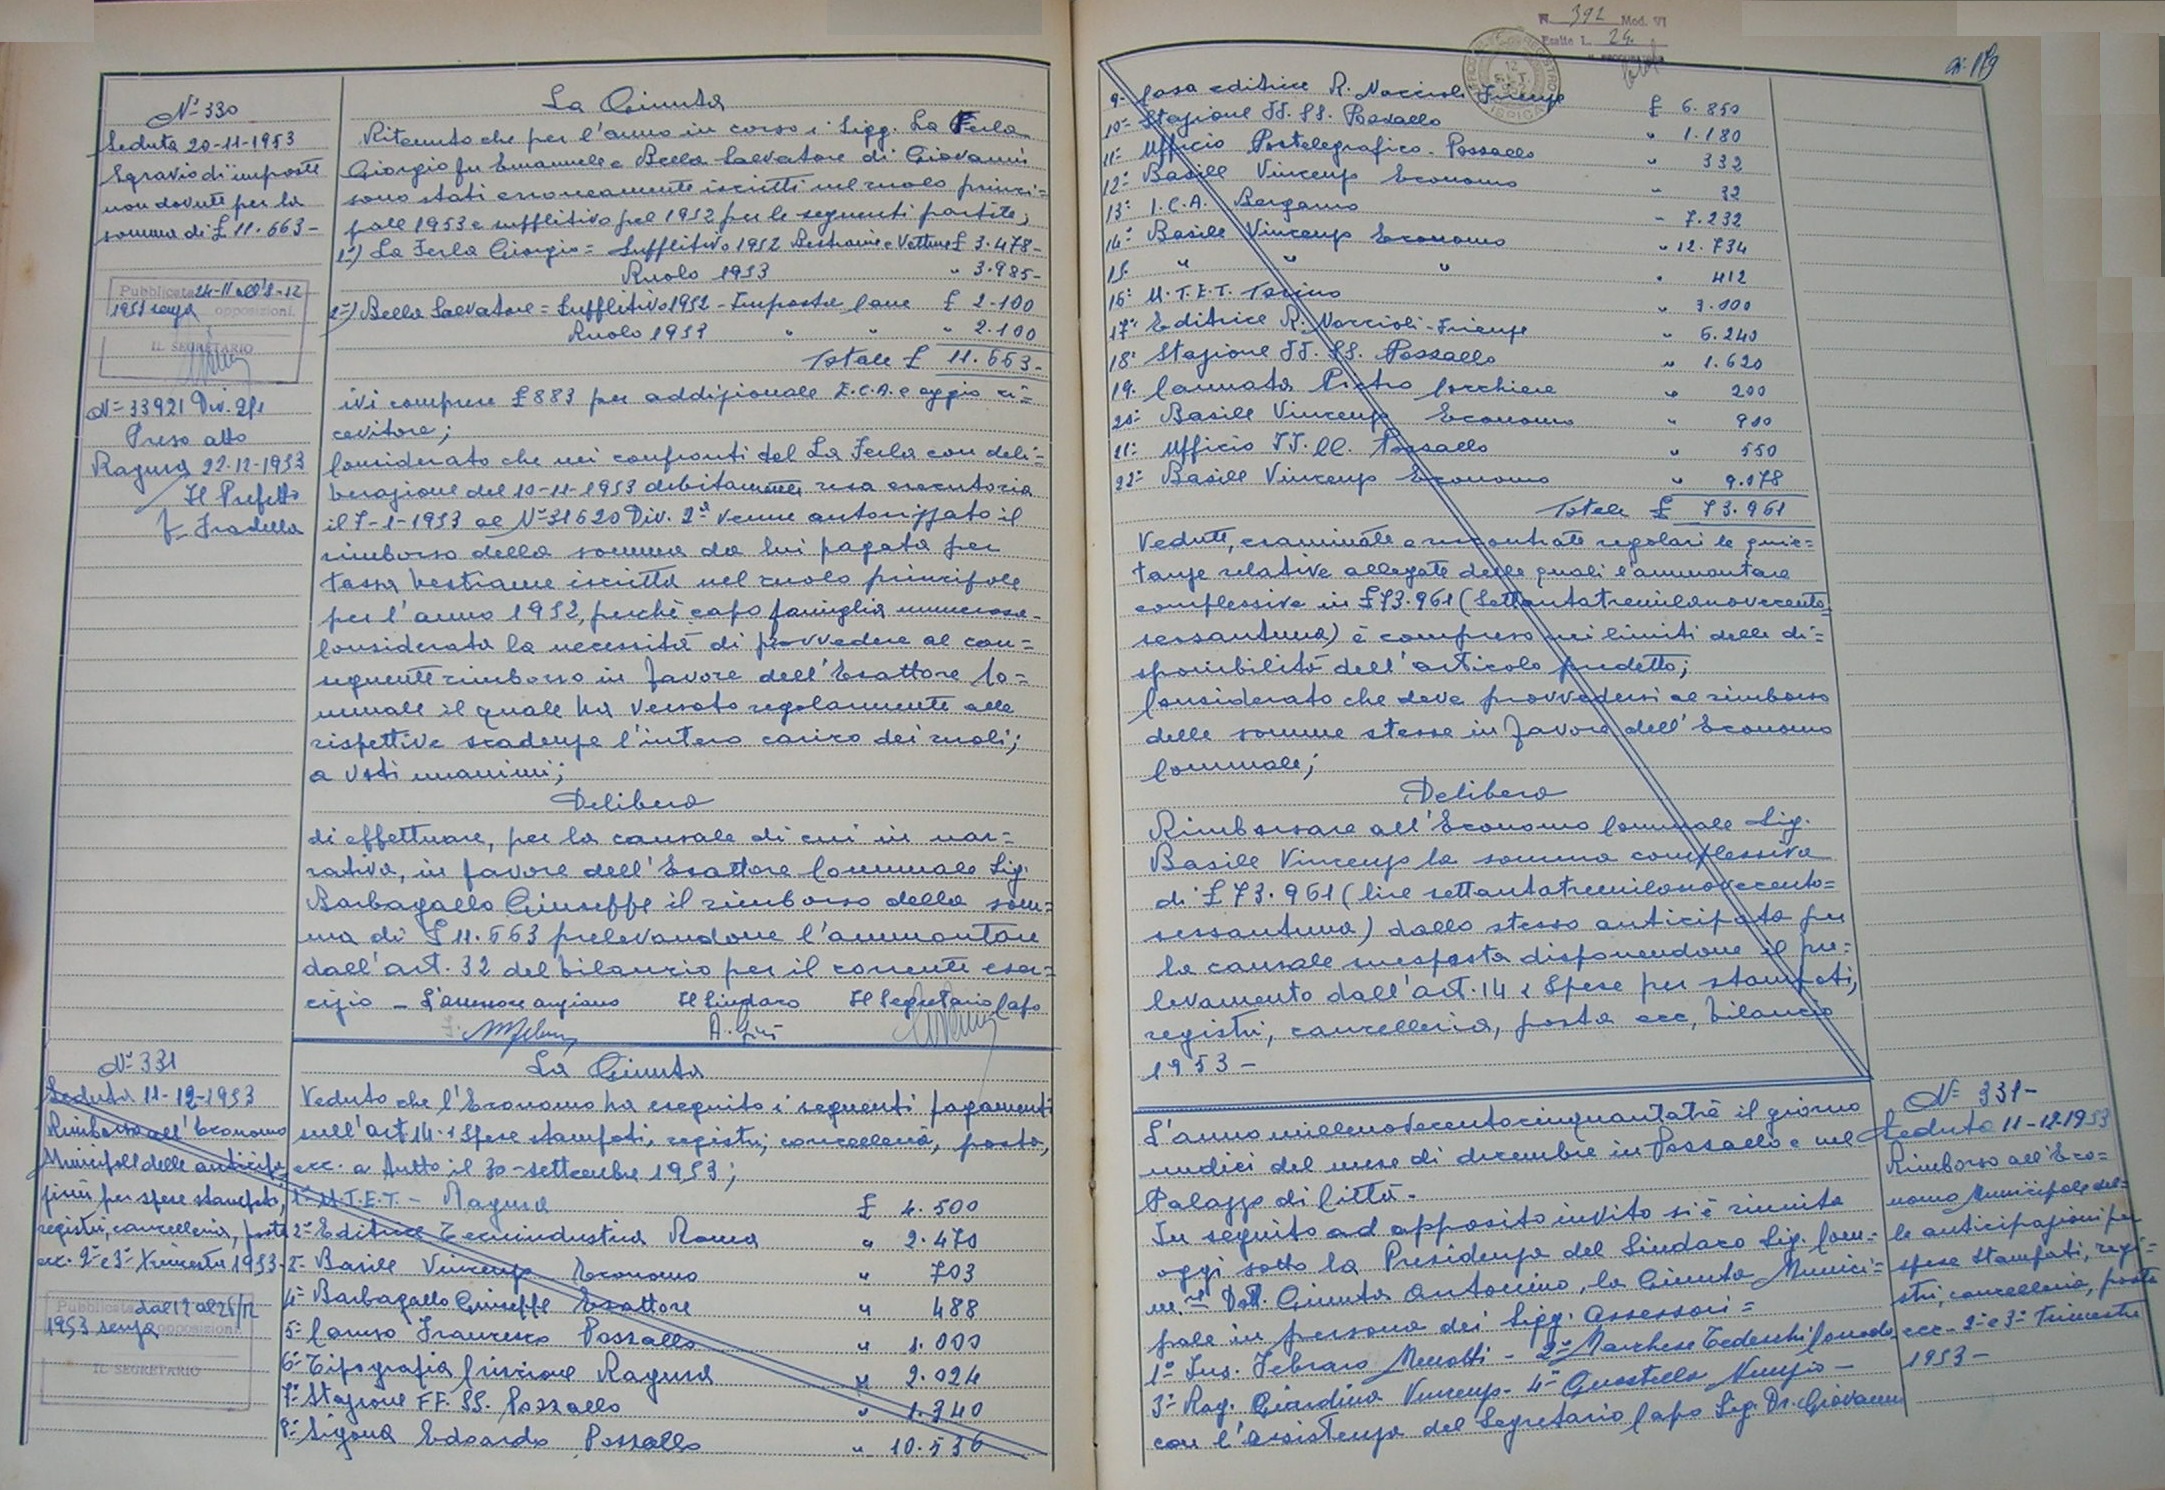 N° 330
Seduta 20-11-1953
Sgravio di imposte
non dovute per la
somma di £ 11.663-
Pubblicata 24-11 all'8-12
1953 senza opposizioni.
IL SEGRETARIO
N° 33921 Div. 2/1
Preso atto
Ragusa 22-12-1953
Il Prefetto
La Giunta
Ritenuto che per l'anno in corso i Sigg. La Ferla
Giorgio fu Emanuele e Bella Salvatore di Giovanni
sono stati erroneamente iscritti nel ruolo princi=
pale 1953 e suppletivo pel 1952 per le seguenti partite;
1°) La Ferla Giorgio = Suppletivo 1952 Bestiame e Vetture £ 3.478-
Ruolo 1953 " 3.985-
2°) Bella Salvatore = Suppletivo 1952 - Imposta Cane £ 2.100
Ruolo 1953 " " " 2.100
Totale £ 11.663-
ivi comprese £ 883 per addizionale E.C.A. e aggio ri=
cevitore;
Considerato che nei confronti del La Ferla con deli=
berazione del 10-11-1953 debitamente resa esecutoria
il 7-1-1953 al N° 31620 Div. 2ª venne autorizzato il
rimborso della somma da lui pagata per
tassa bestiame iscritta nel ruolo principale
per l'anno 1952, perchè capo famiglia numerosa-
Considerata la necessità di provvedere al con=
seguente rimborso in favore dell'Esattore Co=
munale il quale ha versato regolarmente alle
rispettive scadenze l'intero carico dei ruoli;
a voti unanimi;
Delibera
di effettuare, per la causale di cui in nar=
rativa, in favore dell'Esattore Comunale Sig.
Barbagallo Giuseppe il rimborso della som=
ma di £ 11.663 prelevandone l'ammontare
dall'art. 32 del bilancio per il corrente eser=
cizio - L'assessore anziano Il Sindaco Il Segretario Capo
N° 331
Seduta 11-12-1953
Rimborso all'Economo
Municipale delle anticipa
zioni per spese stampati,
registri, cancelleria, posta
ecc. 2° e 3° trimestre 1953-
Pubblicata dal 12 al 26/12
1953 senza opposizioni.
IL SEGRETARIO
La Giunta
Veduto che l'Economo ha eseguito i seguenti pagamenti
sull'art 14. "Spese stampati, registri, cancelleria, posta,
ecc. a tutto il 30-settembre 1953;
1° U.T.E.T. - Ragusa £ 4.500
2° Editrice Tecnindustria Roma " 2.470
3° Basile Vincenzo Economo " 703
4° Barbagallo Giuseppe Esattore " 488
5° Caruso Francesco Pozzallo " 1.000
6° Tipografia Criscione Ragusa " 2.024
7° Stazione FF. SS. Pozzallo " 1.340
8° Sigona Edoardo Pozzallo " 10.536
N. 392 Mod. VI
Esatte L. 24.
9° Casa editrice R. Noccioli Firenze £ 6.850
10° Stazione FF. SS. Pozzallo " 1.180
11° Ufficio Postelegrafico - Pozzallo " 332
12° Basile Vincenzo Economo " 32
13° I.C.A. Bergamo - 7.232
14° Basile Vincenzo Economo " 12.734
15. " " " " 412
16° U.T.E.T. Torino " 3.000
17° Editrice R. Noccioli - Firenze " 6.240
18° Stazione FF. SS. Pozzallo " 1.620
19. Cannata Pietro Torchiere " 200
20° Basile Vincenzo Economo " 900
21° Ufficio FF. LL. Pozzallo " 550
22° Basile Vincenzo Economo " 9.078
Totale £ 73.961
Vedute, esaminate e riscontrate regolari le quie=
tanze relative allegate delle quali l'ammontare
complessivo in £ 73.961 (settantatremilanovecento=
sessantuna) è compreso nei limiti delle di=
sponibilità dell'articolo predetto;
Considerato che deve provvedersi al rimborso
delle somme stesse in favore dell'Economo
Comunale;
Delibera
Rimborsare all'Economo Comunale Sig.
Basile Vincenzo la somma complessiva
di £ 73.961 (lire settantatremilanovecento=
sessantuna) dallo stesso anticipata per
la causale suesposta disponendone il pre=
levamento dall'art. 14 "Spese per stampati,
registri, cancelleria, posta ecc, bilancio
1953 -
L'anno millenovecentocinquantatrè il giorno
undici del mese di dicembre in Pozzallo e nel
Palazzo di Città.
In seguito ad apposito invito si è riunita
oggi sotto la Presidenza del Sindaco Sig. Com=
m. Dott. Giunta Antonino, la Giunta Munici=
pale in persona dei Sigg. Assessori =
1° Ins. Febraro Menotti - 2° Marchese Tedeschi Corrado
3° Rag. Giardina Vincenzo - 4° Guastella Nunzio -
con l'assistenza del Segretario Capo Sig. Dr. Giovanni
N° 331-
Seduta 11-12-1953
Rimborso all'Eco=
nomo Municipale del=
le anticipazioni per
spese stampati, regi=
stri, cancelleria, posta
ecc. 2° e 3° trimestre
1953-